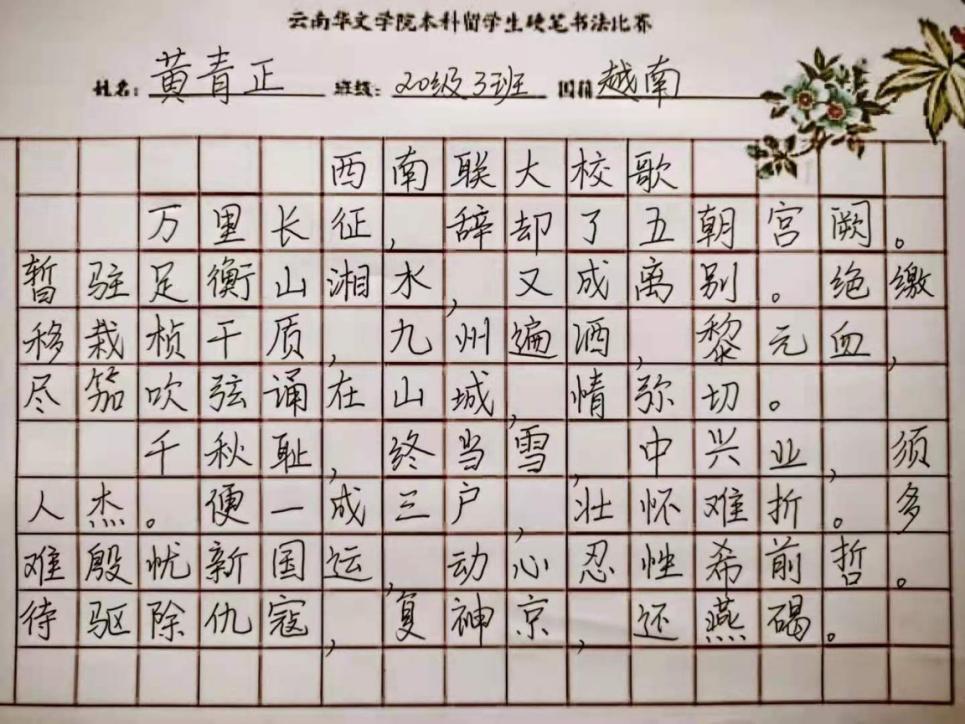 云南华文学院本科留学生硬笔书法比赛
姓名：黄青正 班级：20级3班 国籍越南
西南联大校歌
万里长征，辞却了五朝宫阙。
暂驻足衡山湘水，又成离别。绝缴
移栽桢干质，九州遍洒，黎元血，
尽笳吹弦诵在山城，情弥切。
千秋耻，终当雪，中兴业，须
人杰。便一成三户，壮怀难折。多
难殷忧新国运，动心忍性希前哲。
待驱除仇寇，复神京，还燕碣。